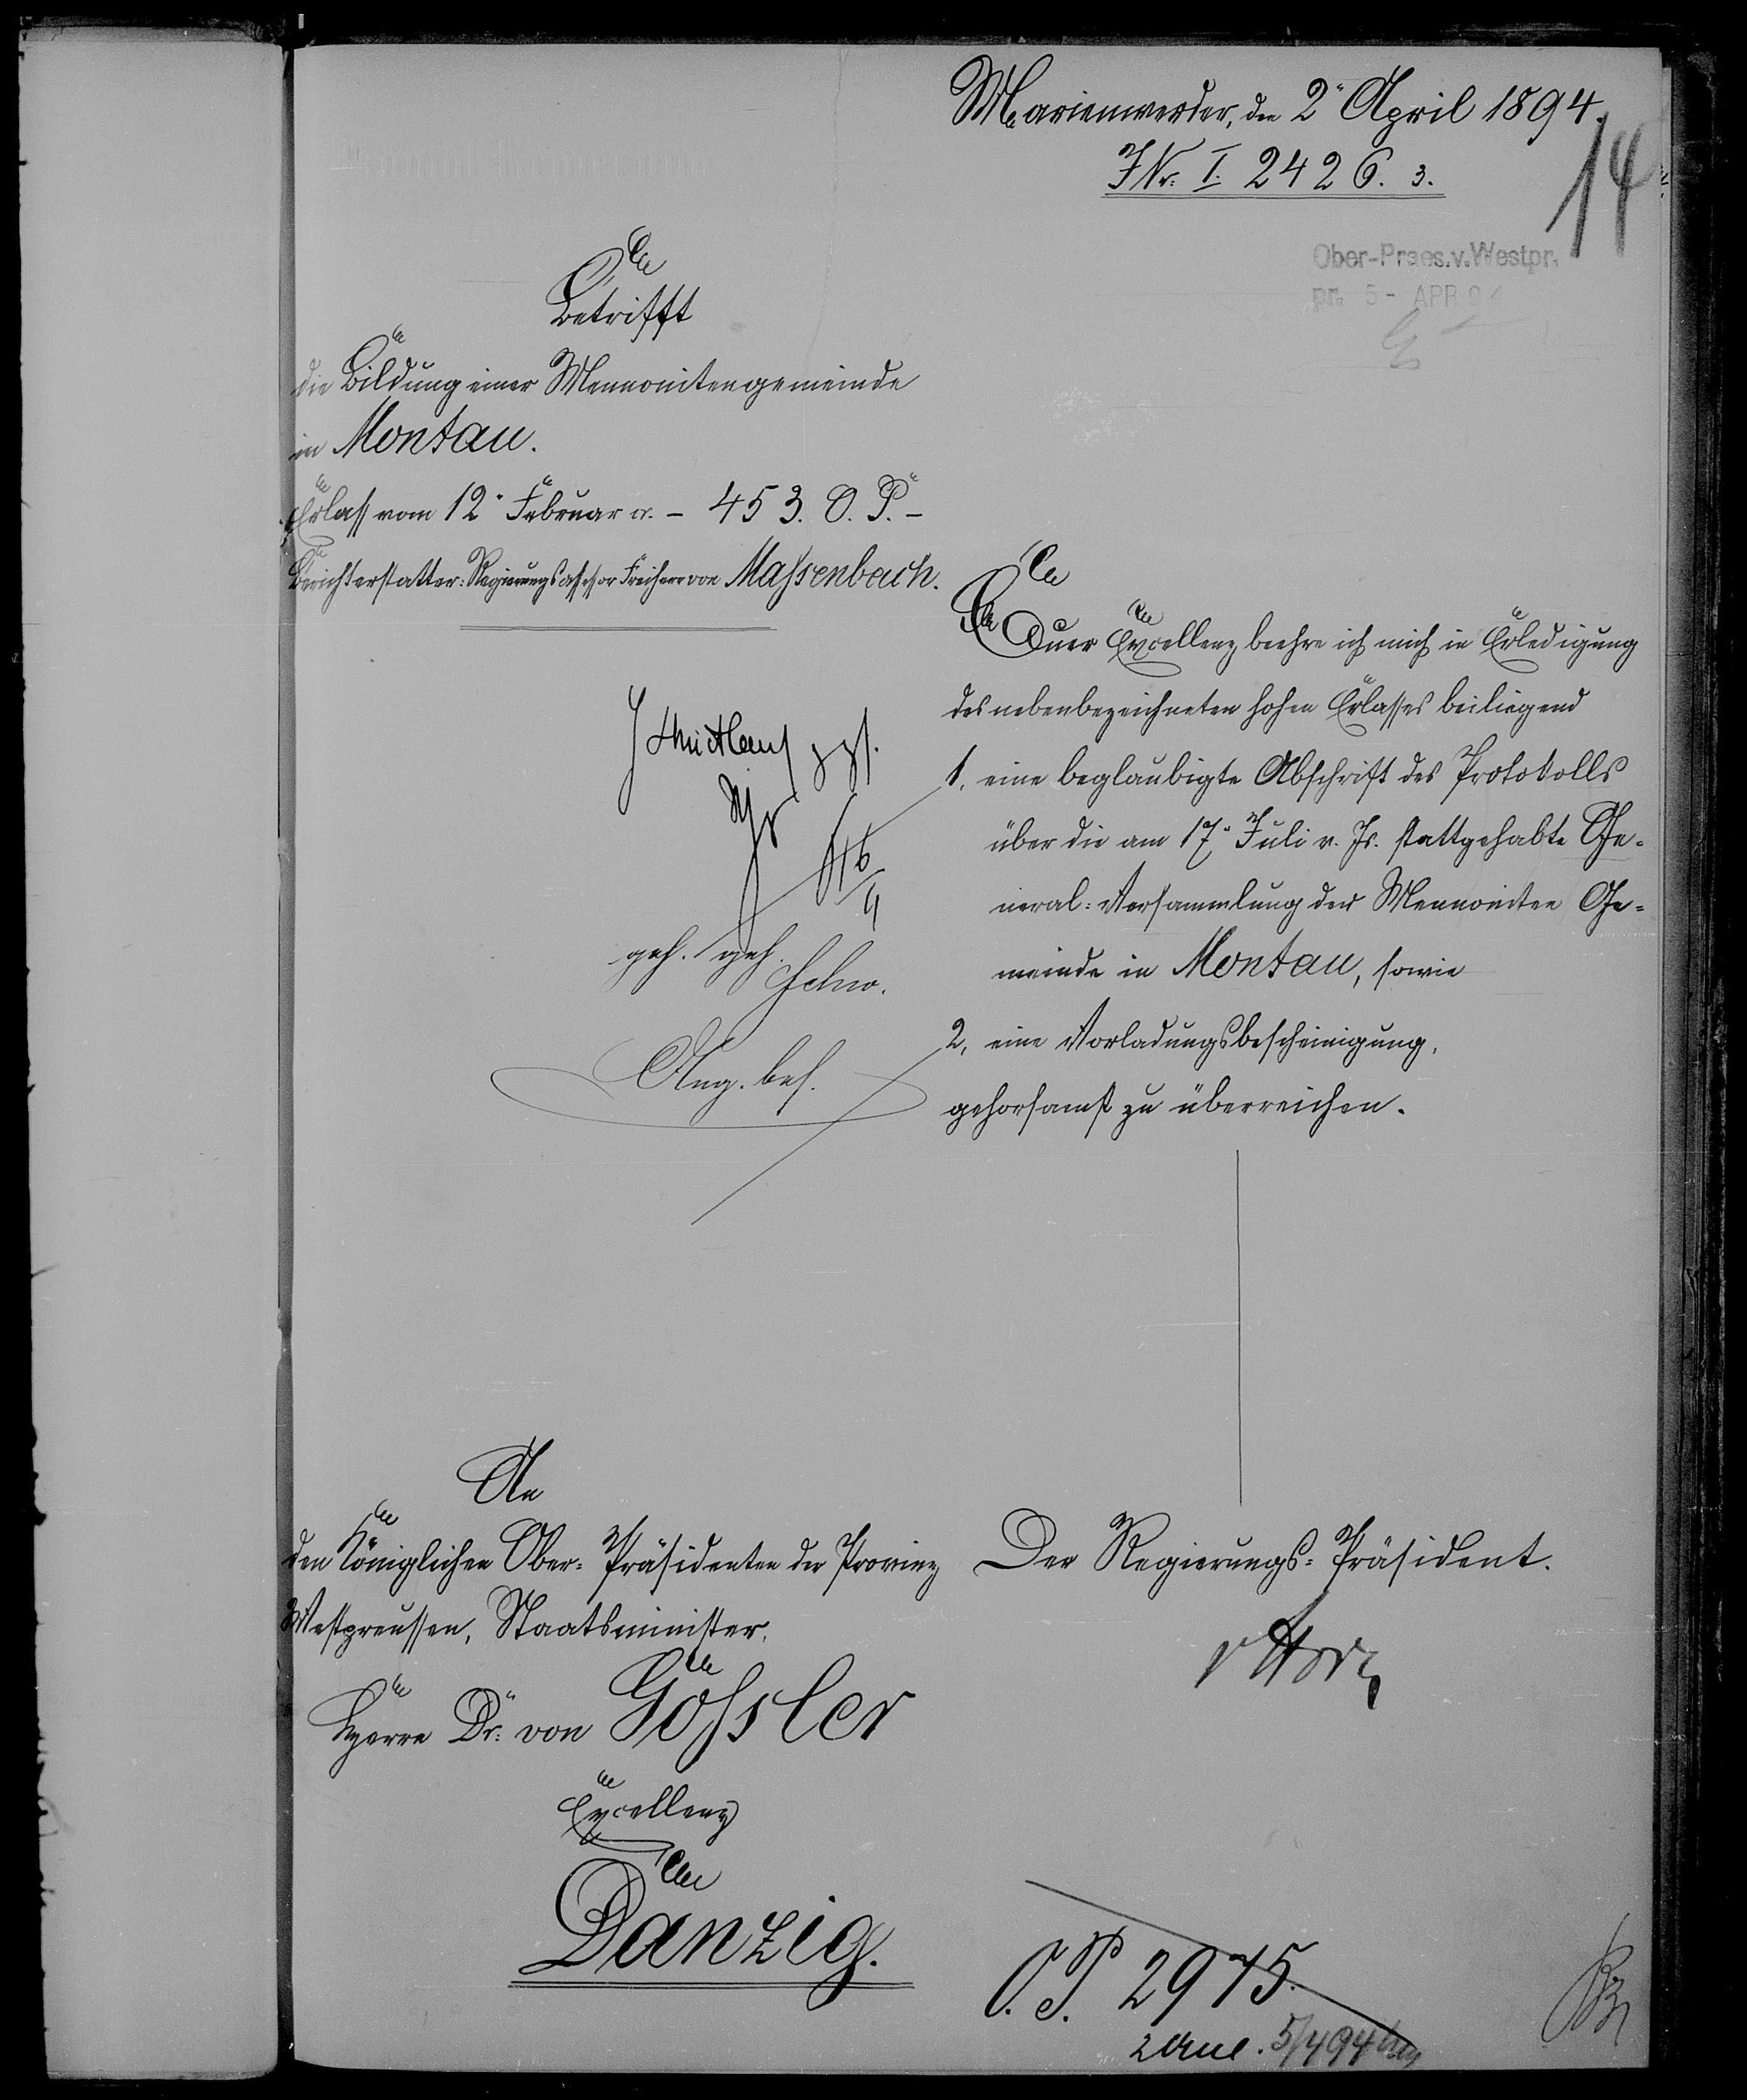 Marienwerder, den 2. April 1894.
JNr. I. 2426. 3.
14
Ober-Praes.v.Westpr.
pr. 5 - APR 94
Betrifft
die Bildung einer Mennonitengemeinde
in Montau.
Erlass vom 12. Februar cr. - 453. O. P. -
Berichterstatter: Regierungsassessor Freiherr von Massenbach.
Euer Excellenz beehre ich mich in Erledigung
des nebenbezeichneten hohen Erlasses beiliegend
1, eine beglaubigte Abschrift des Protokolls
über die am 17. Juli v. Js. stattgehabte Ge-
neral-Versammlung der Mennoniten Ge-
meinde in Montau, sowie
2, eine Vorladungsbescheinigung,
gehorsamst zu überreichen.
geh. geh.
Ang. bes.
An
den Königlichen Ober-Präsidenten der Provinz
Westpreussen, Staatsminister,
Herrn Dr. von Gossler
Excellenz
Danzig.
Der Regierungs-Präsident.
v Horn
O. P. 2975.
2 Anl. 5/4 94